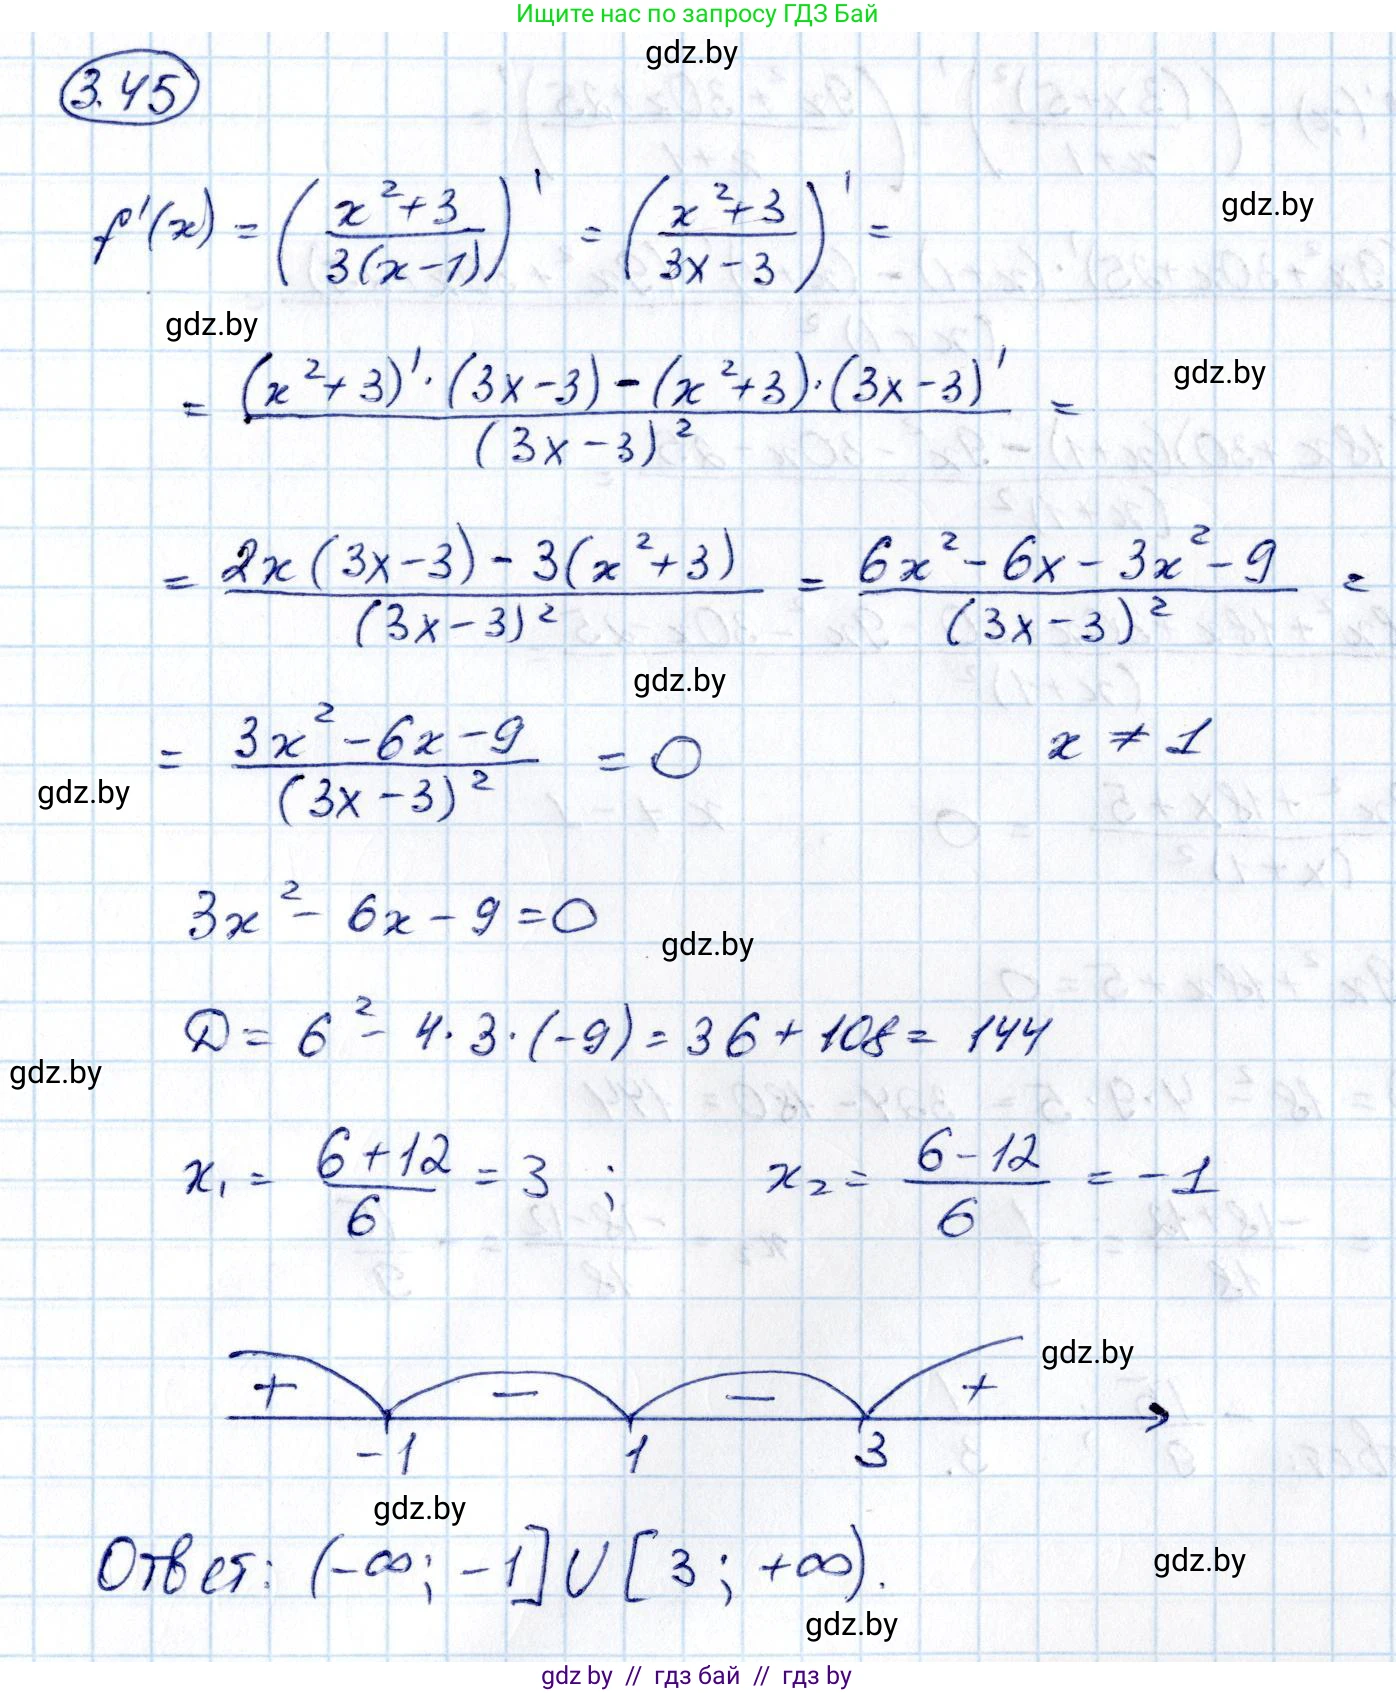 Ищите нас по запросу ГДЗ Бай
gdz.by
3.45
f'(x) = ((x²+3)/(3(x-1)))' = ((x²+3)/(3x-3))' =
gdz.by
gdz.by
= ((x²+3)'·(3x-3)-(x²+3)·(3x-3)')/((3x-3)²) =
gdz.by
= (2x(3x-3)-3(x²+3))/((3x-3)²) = (6x²-6x-3x²-9)/((3x-3)²) =
gdz.by
= (3x²-6x-9)/((3x-3)²) = 0 x ≠ 1
gdz.by
3x²- 6x-9=0
gdz.by
D = 6²- 4·3·(-9)=36+108= 144
gdz.by
x₁ = (6+12)/6 = 3 ; x₂ = (6-12)/6 = -1
gdz.by
+ - - +
-1 1 3
gdz.by
Ответ: (-∞; -1]∪[3; +∞).
gdz.by
gdz.by
gdz.by // гдз бай // гдз by